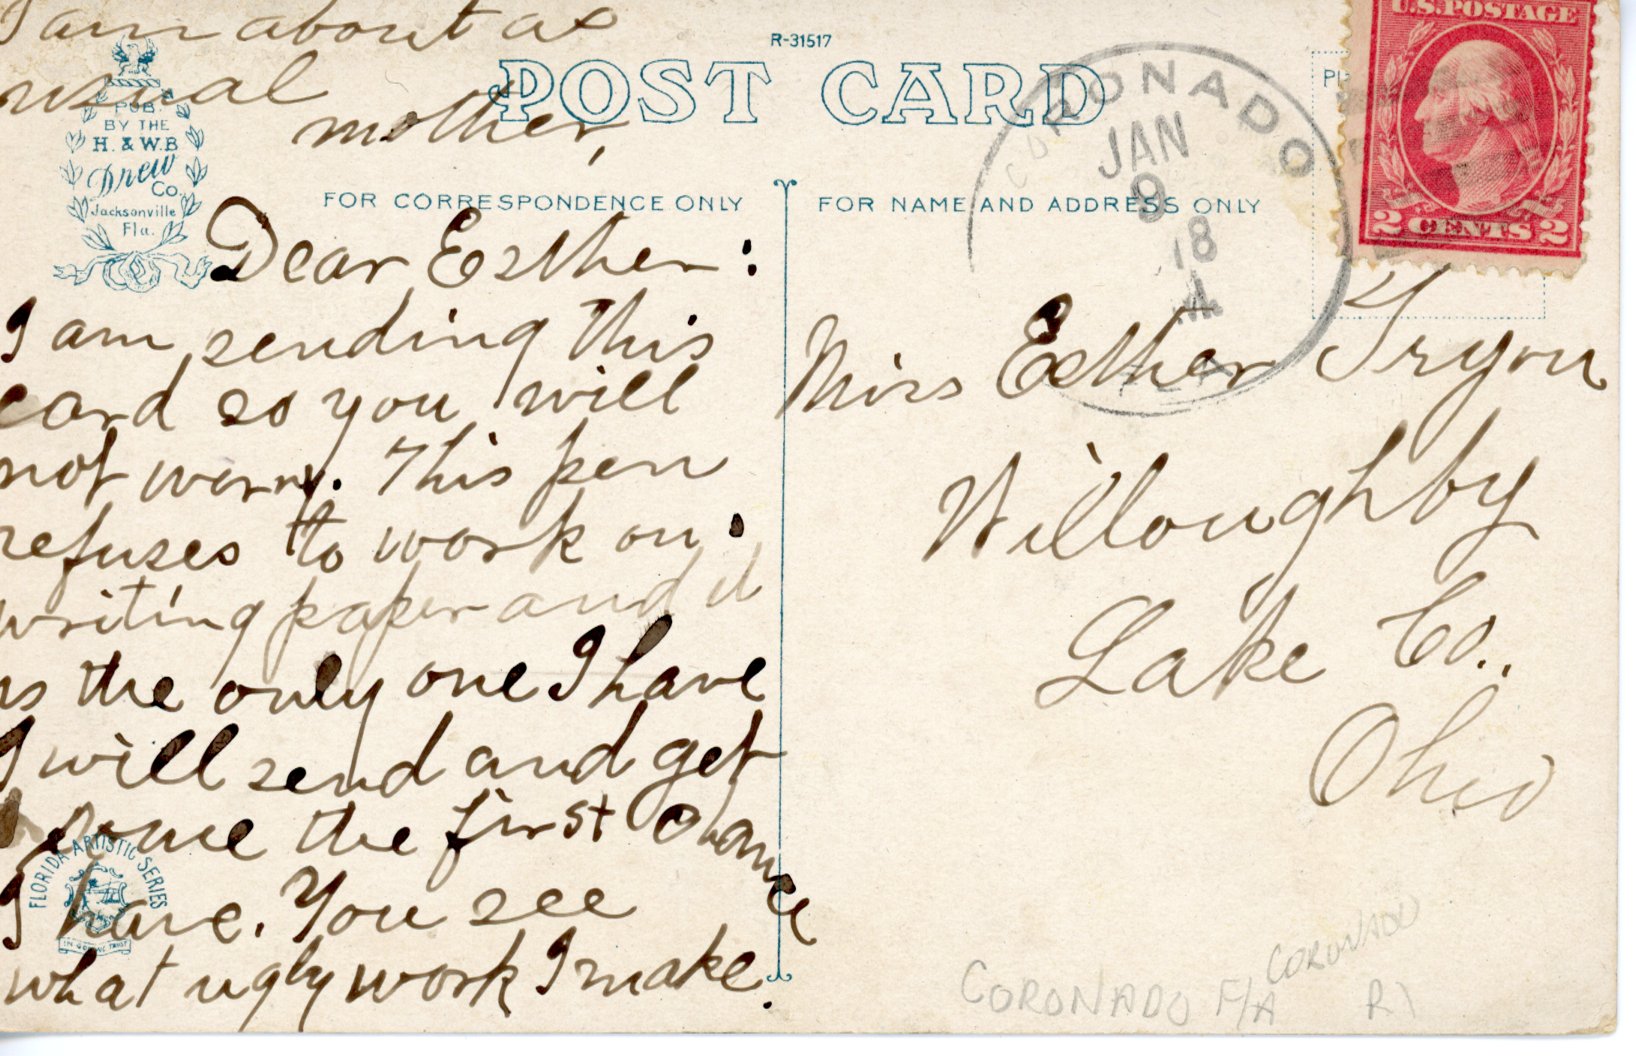 I am about as
usual
mother,
R-31517
POST CARD
PUB.
BY THE
H. & W.B
Drew
Co.
Jacksonville
Fla.
FOR CORRESPONDENCE ONLY
Dear Esther:
I am sending this
card so you will
not worry. This pen
refuses to work on
writing paper and it
is the only one I have
I will send and get
some the first chance
I have. You see
what ugly work I make.
FLORIDA ARTISTIC SERIES
IN GOD WE TRUST
FOR NAME AND ADDRESS ONLY
CORONADO
JAN
9
18
U.S. POSTAGE
2 CENTS 2
Miss Esther Tryon
Willoughby
Lake Co.,
Ohio
CORONADO
CORONADO F/A R1